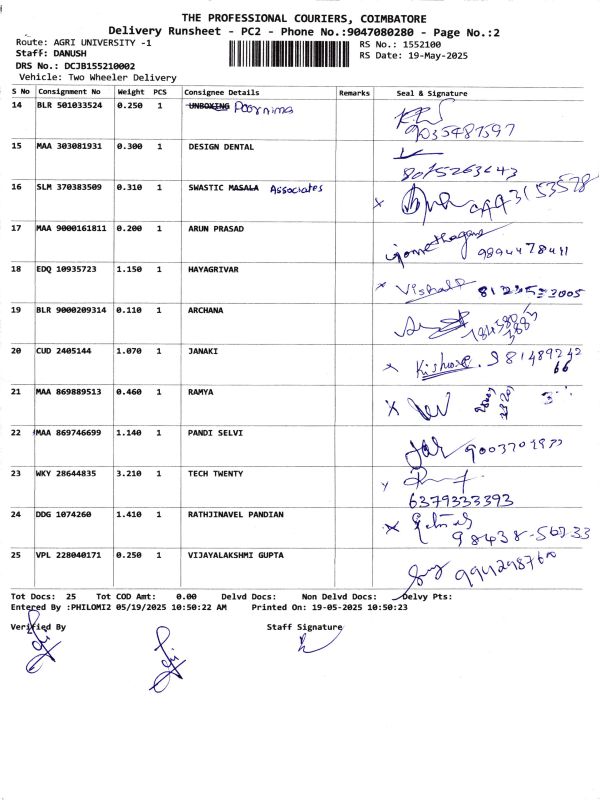 THE PROFESSIONAL COURIERS, COIMBATORE
Delivery Runsheet - PC2 - Phone No.:9047080280 - Page No.:2
Route: AGRI UNIVERSITY -1
Staff: DANUSH
DRS No.: DCJB155210002
Vehicle: Two Wheeler Delivery
RS No.: 1552100
RS Date: 19-May-2025
S No Consignment No Weight PCS Consignee Details Remarks Seal & Signature
14 BLR 501033524 0.250 1 UNBOXING Poornima
9035487597
15 MAA 303081931 0.300 1 DESIGN DENTAL
8015263643
16 SLM 370383509 0.310 1 SWASTIC MASALA Associates
17 MAA 9000161811 0.200 1 ARUN PRASAD
9894478411
18 EDQ 10935723 1.150 1 HAYAGRIVAR
Vishal P
19 BLR 9000209314 0.110 1 ARCHANA
20 CUD 2405144 1.070 1 JANAKI
Kishore. 981489242
66
21 MAA 869889513 0.460 1 RAMYA
22 MAA 869746699 1.140 1 PANDI SELVI
23 WKY 28644835 3.210 1 TECH TWENTY
6379333393
24 DDG 1074260 1.410 1 RATHJINAVEL PANDIAN
25 VPL 228040171 0.250 1 VIJAYALAKSHMI GUPTA
9942987600
Tot Docs: 25 Tot COD Amt: 0.00 Delvd Docs: Non Delvd Docs: Delvy Pts:
Entered By :PHILOMI2 05/19/2025 10:50:22 AM Printed On: 19-05-2025 10:50:23
Verified By Staff Signature